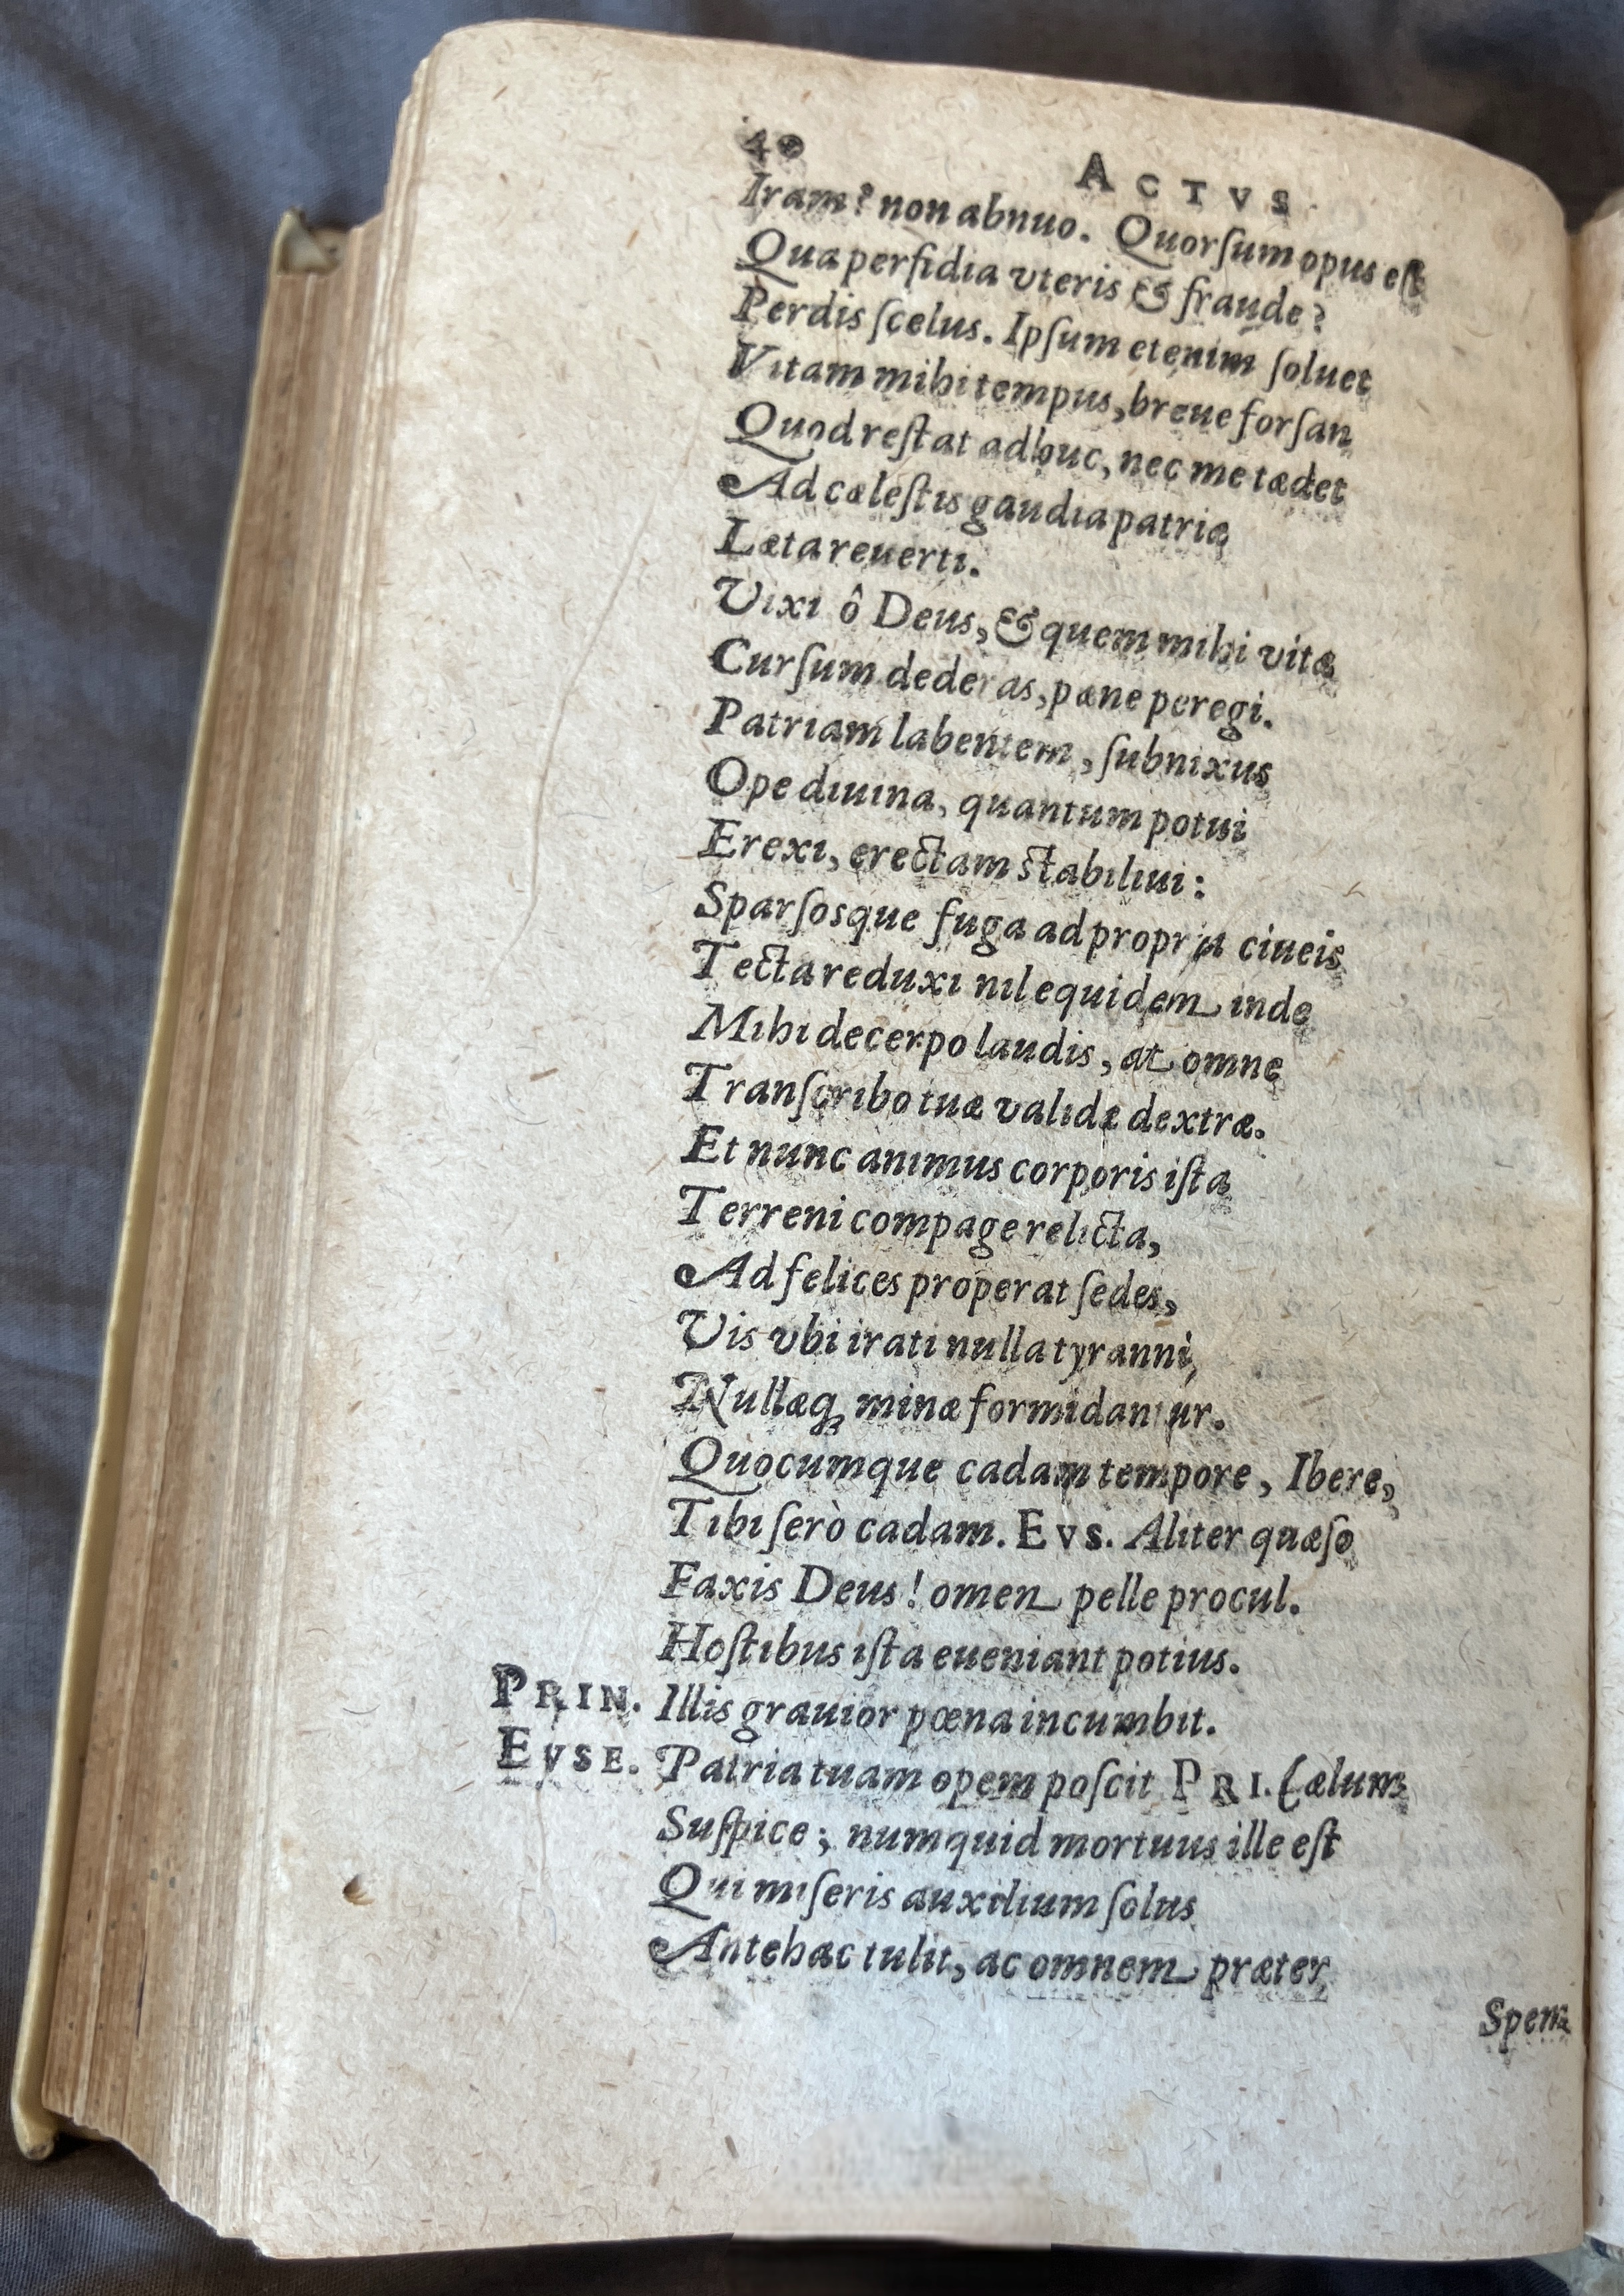 40 ACTVS
Iram? non abnuo. Quorſum opus eſt
Qua perfidia vteris & fraude?
Perdis ſcelus. Ipſum etenim ſoluet
Vitam mihi tempus, breue forſan
Quod reſtat adhuc, nec me tædet
Ad cæleſtis gaudia patriæ
Læta reuerti.
Vixi ô Deus, & quem mihi vitæ
Curſum dederas, pæne peregi.
Patriam labentem, ſubnixus
Ope diuina, quantum potui
Erexi, erectam stabiliui:
Sparſosque fuga ad propria ciueis
Tecta reduxi nil equidem inde
Mihi decerpo laudis, at omne
Tranſcribo tuæ validæ dextræ.
Et nunc animus corporis iſta
Terreni compage relicta,
Ad felices properat ſedes,
Vis vbi irati nulla tyranni,
Nullæq; minæ formidantur.
Quocumque cadam tempore, Ibere,
Tibi ſerò cadam. EVS. Aliter quæſo
Faxis Deus! omen pelle procul.
Hoſtibus iſta eueniant potius.
PRIN. Illis grauior pœna incumbit.
EVSE. Patria tuam opem poſcit PRI. Cælum
Suſpice; numquid mortuus ille eſt
Qui miſeris auxilium ſolus
Antehac tulit, ac omnem præter
Spem